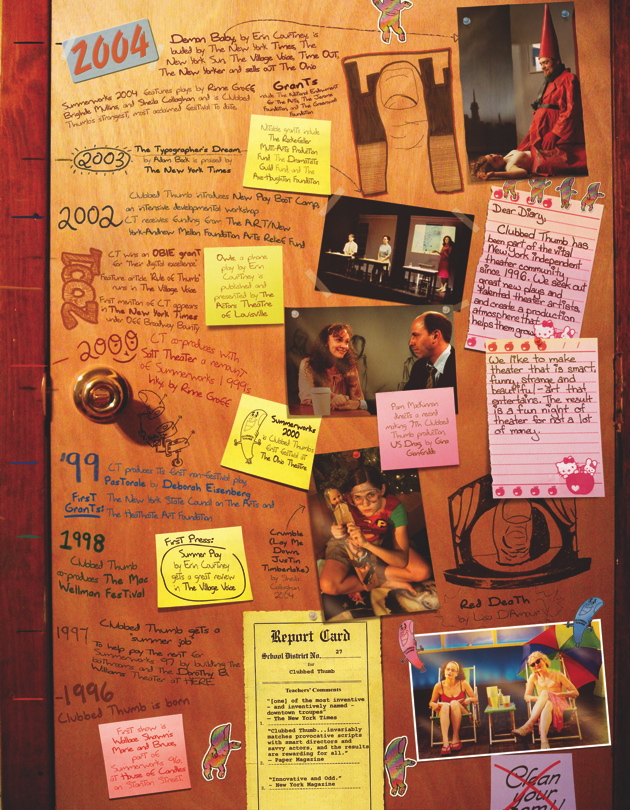 2004
Demon Baby, by Erin Courtney, is
lauded by The New York Times, The
New York Sun, The Village Voice, Time Out,
The New Yorker and sells out The Ohio
Summerworks 2004 features plays by Rinne Groff,
Brighde Mullins, and Sheila Callaghan and is Clubbed
Thumb's strangest, most acclaimed festival to date.
Grants
include The National Endowment
For The Arts, The Jerome
Foundation, and The Greenwall
Foundation
Notable grants include
The Rockefeller
Multi-Arts Production
Fund, The Dramatists
Guild Fund and The
Axe-Houghton Foundation
2003
The Typographer's Dream
by Adam Bock is praised by
The New York Times
2002
Clubbed Thumb introduces New Play Boot Camp,
an intensive developmental workshop
CT receives funding from The ART/New
York-Andrew Mellon Foundation Arts Relief Fund
Dear Diary,
Clubbed Thumb has
been part of the vital
New York independent
theater community
since 1996. We seek out
great new plays and
talented theater artists
and create a production
atmosphere that
helps them grow.
2001
CT wins an OBIE grant
for "their digital excellence"
Feature article 'Rule of Thumb'
runs in The Village Voice
First mention of CT appears
in The New York Times
under Off Broadway Bounty
Owls, a phone
play by Erin
Courtney is
published and
presented by The
Actors Theatre
of Louisville
2000
CT co-produces with
Salt Theater a remount
of Summerworks 1999's
Inky by Rinne Groff
We like to make
theater that is smart,
funny, strange and
beautiful - art that
entertains. The result
is a fun night of
theater for not a lot
of money.
Summerworks
2000
is Clubbed Thumb's
first festival at
The Ohio Theatre
Pam MacKinnon
directs a record
making 7th Clubbed
Thumb production,
US Drag, by Gina
Gionfriddo
'99
CT produces its first non-festival play,
Pastorale by Deborah Eisenberg
First
Grants:
The New York State Council on The Arts and
The Heathcote Art Foundation
1998
Clubbed Thumb
co-produces The Mac
Wellman Festival
First Press:
Summer Play
by Erin Courtney
gets a great review
in The Village Voice
Crumble
(Lay Me
Down,
Justin
Timberlake)
by Sheila
Callaghan
2004
Red Death
by Lisa D'Amour
1997
Clubbed Thumb gets a
"summer job"
To help pay the rent for
Summerworks '97 by building the
bathrooms and the Dorothy B.
Williams Theater at HERE
-1996
Clubbed Thumb is born
First show is
Wallace Shawn's
Marie and Bruce,
part of
Summerworks '96,
at House of Candles
on Stanton Street.
Report Card
School District No. 27
for
Clubbed Thumb
Teachers' Comments
"[one] of the most inventive
- and inventively named -
downtown troupes"
1. - The New York Times
"Clubbed Thumb...invariably
matches provocative scripts
with smart directors and
savvy actors, and the results
are rewarding for all."
2. - Paper Magazine
"Innovative and Odd."
3. - New York Magazine
Clean
your